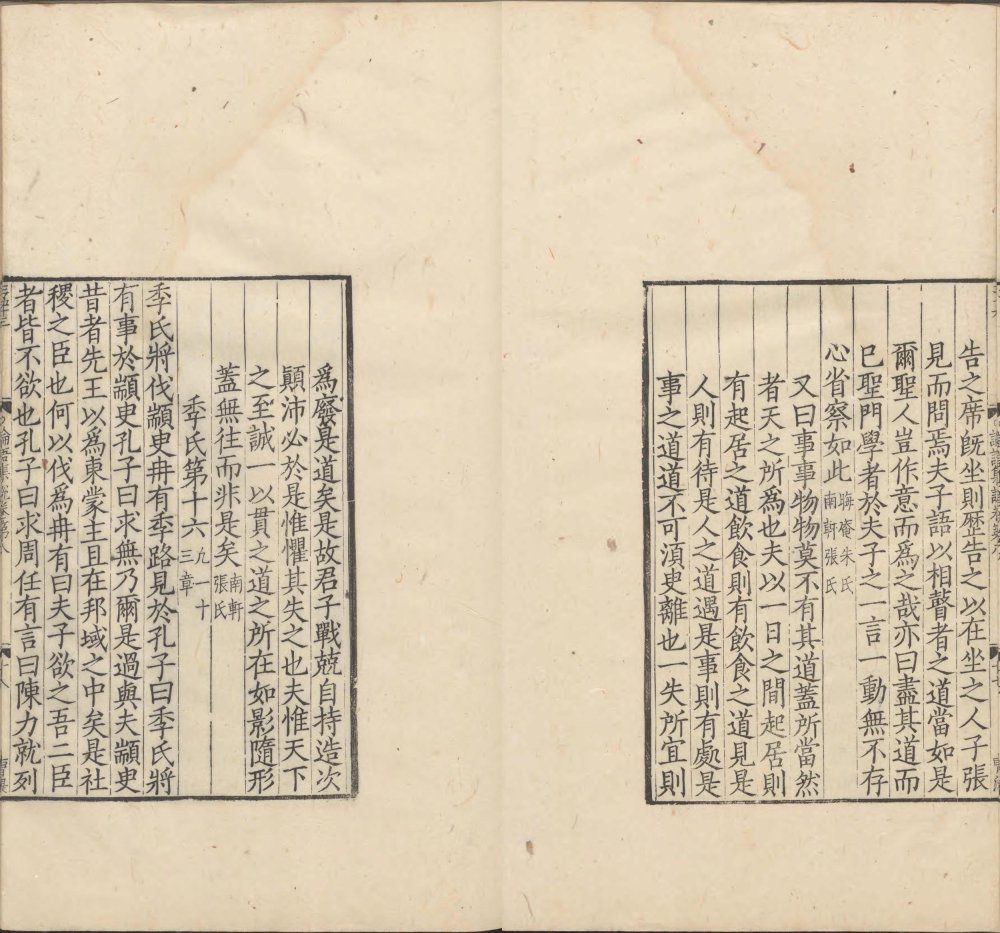 告之席既坐則歷告之以在坐之人子張
見而問焉夫子語以相瞽者之道當如是
爾聖人豈作意而爲之哉亦曰盡其道而
已聖門學者於夫子之一言一動無不存
心省察如此晦庵朱氏南軒張氏
又曰事事物物莫不有其道蓋所當然
者天之所爲也夫以一日之間起居則
有起居之道飲食則有飲食之道見是
人則有待是人之道遇是事則有處是
事之道道不可須臾離也一失所宜則
爲廢是道矣是故君子戰兢自持造次
顛沛必於是惟懼其失之也夫惟天下
之至誠一以貫之道之所在如影隨形
蓋無往而非是矣南軒張氏
季氏第十六凡一十三章
季氏將伐顓臾冉有季路見於孔子曰季氏將
有事於顓臾孔子曰求無乃爾是過與夫顓臾
昔者先王以爲東蒙主且在邦域之中矣是社
稷之臣也何以伐爲冉有曰夫子欲之吾二臣
者皆不欲也孔子曰求周任有言曰陳力就列